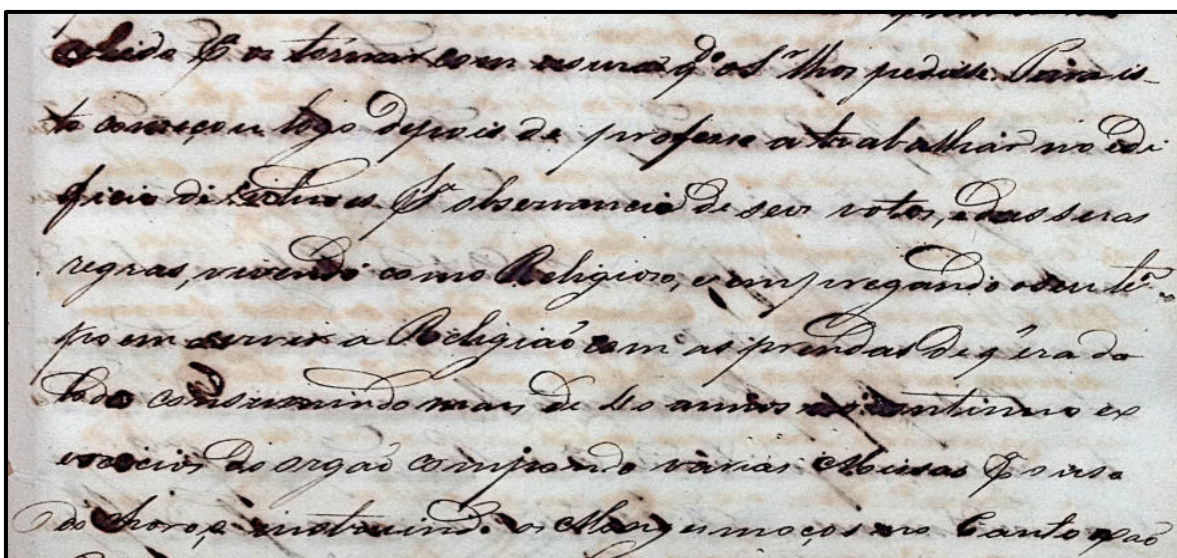 colido p.ª os tornar com usura q.do o S.r lhos pedisse. Para is-
to começou logo depois de professo a trabalhar no edi
ficio de p.ª observancia de seos votos, e das suas
regras, vivendo como Religioso, e empregando o seu tē-
po em servir a Religiaõ com as prendas de q̃ era do
tado consumindo mais de 40 annos no continuo ex
ercicio do orgaõ compondo várias Missas p.ª o uso
do Choro, e instruindo os Monges moços no Canto chaõ